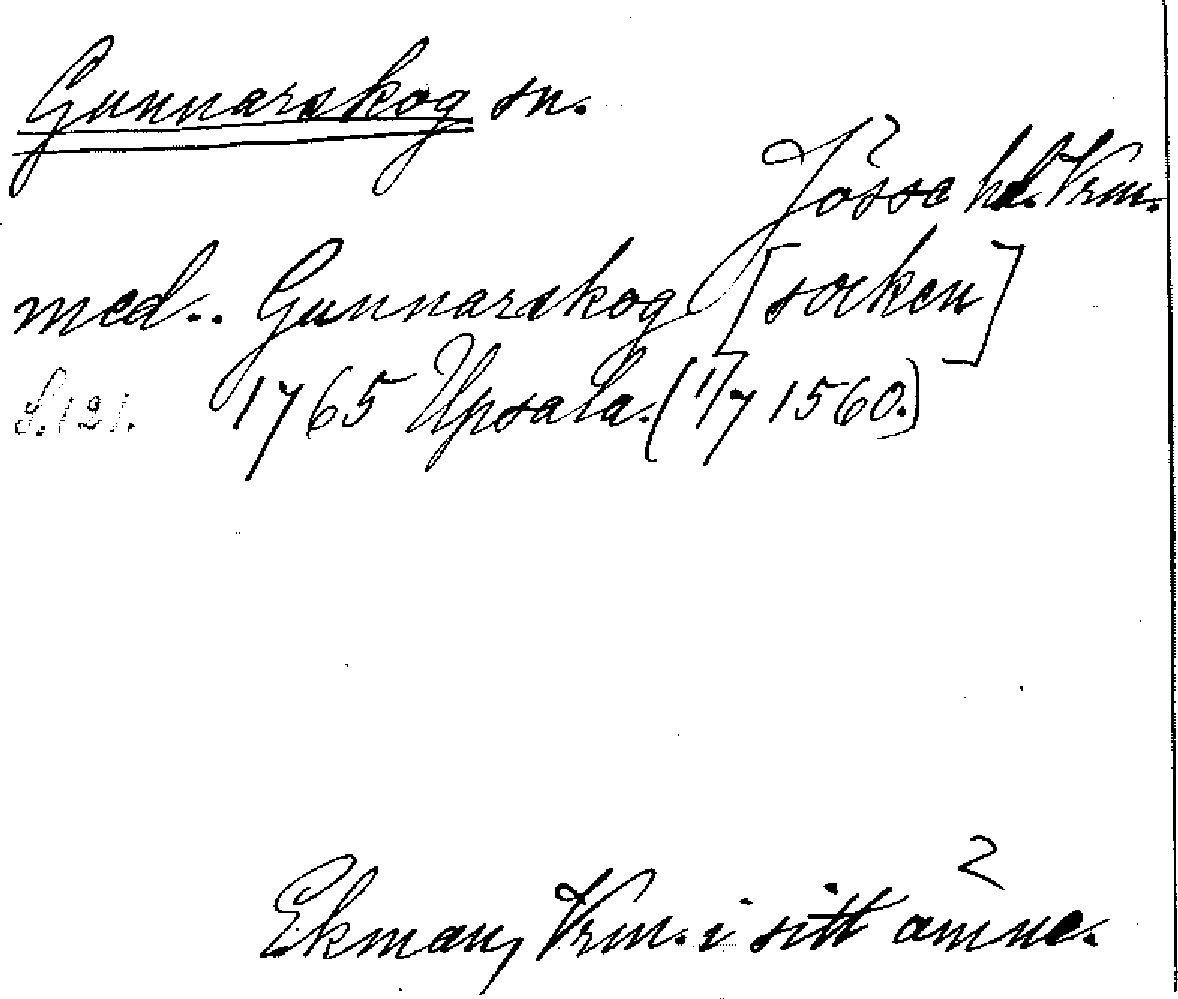 Gunnarskog sn.
Jösse hd. Vrm.
med.. Gunnarskog [socken]
S. 121. 1765 Upsala. (1/7 1560.)
2
Ekman, Vrm. i sitt ämne.